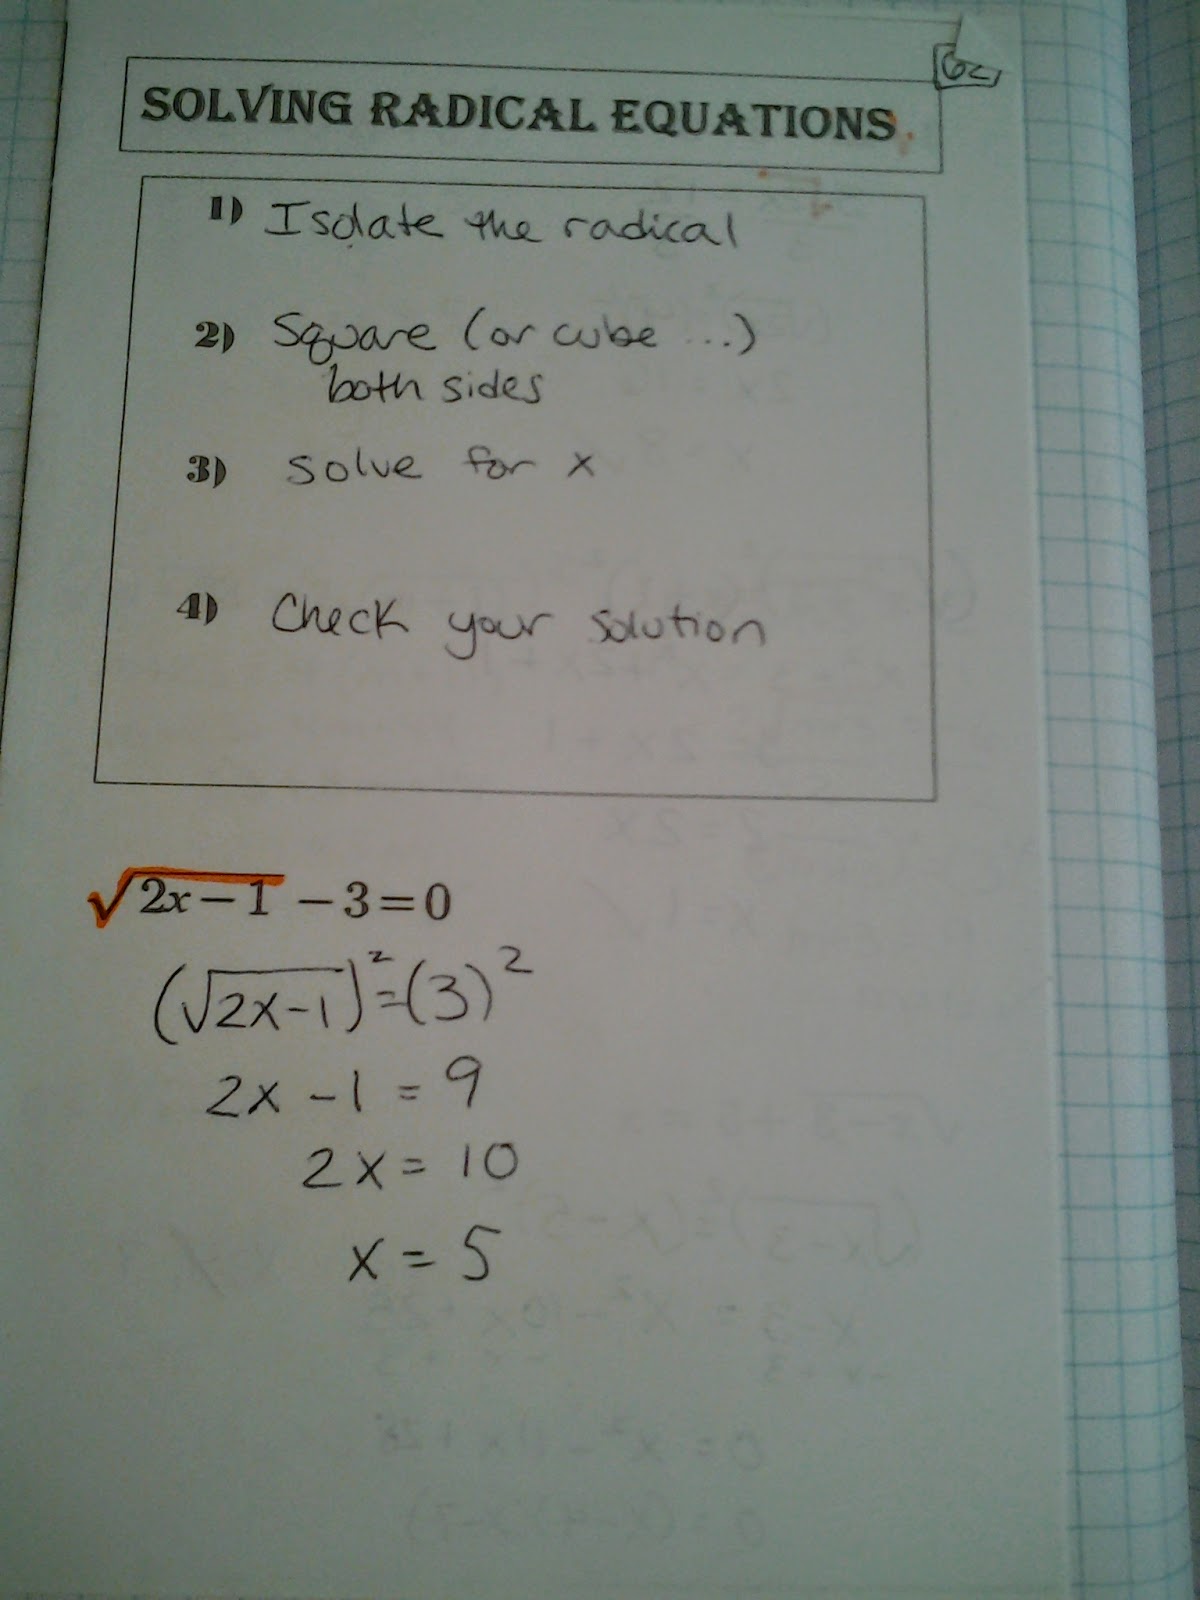 62
SOLVING RADICAL EQUATIONS
1) Isolate the radical
2) Square (or cube ...)
both sides
3) solve for x
4) Check your solution
√2x-1 - 3 = 0
(√2x-1)² = (3)²
2x - 1 = 9
2x = 10
x = 5